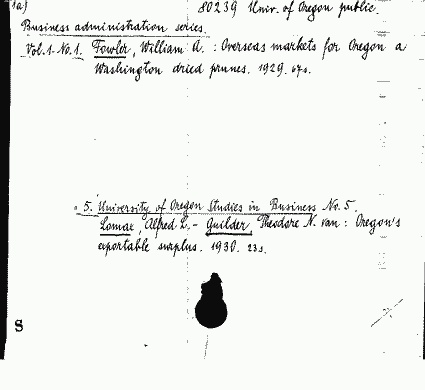 1a) 80239 Univ. of Oregon public.
Business administration series.
Vol. 1. No. 1. Fowler, William A. : Overseas markets for Oregon a
Washington dried prunes. 1929. 67s.
5. University of Oregon Studies in Business No. 5.
Lomax, Alfred L. - Guilder, Theodore N. van : Oregon's
exportable surplus. 1930. 23s.
S